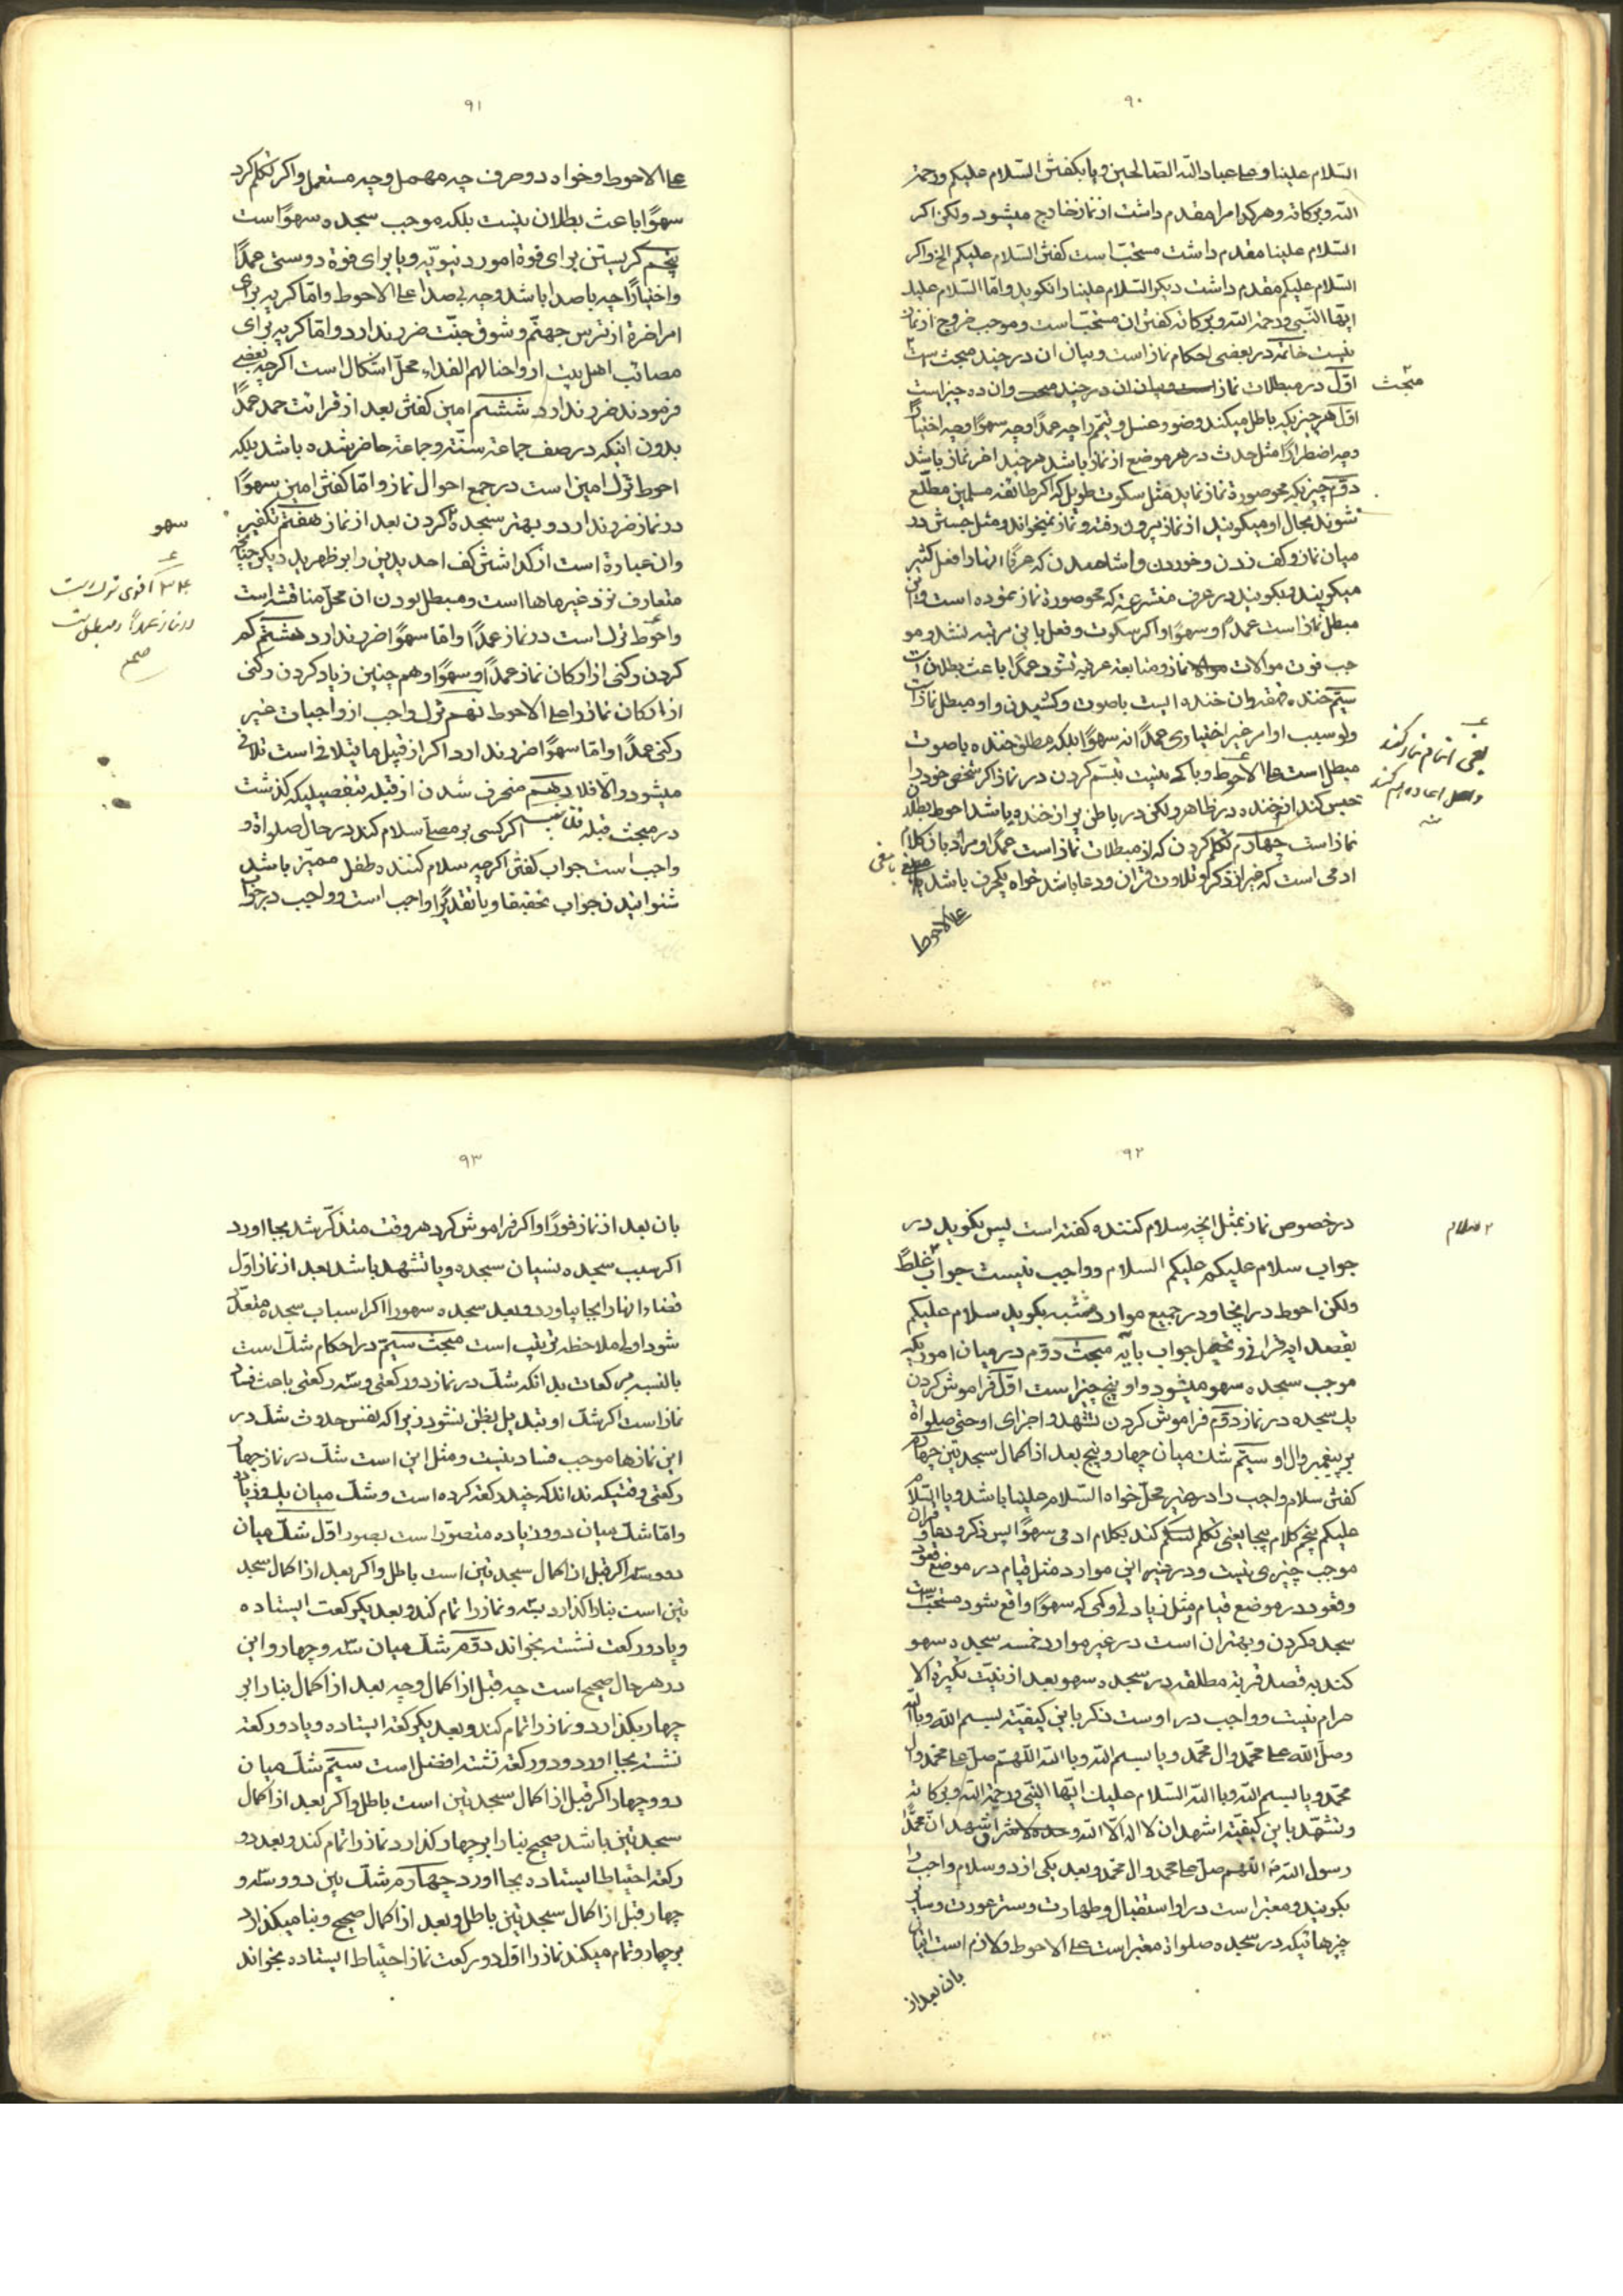 ۹۰
السّلام علینا و علی عباد الله الصّالحین و یا بکفتن السّلام علیکم و رحمة
الله و برکاته و هر کدام را مقدم داشت از نماز خارج میشود ولکن اکر
السّلام علینا مقدم داشت مستحبّ است کفتن السّلام علیکم الخ و اکر
السّلام علیکم مقدم داشت دیکر السّلام علینا را نکوید و امّا السّلام علیک
ایّها النّبی و رحمة الله و برکاته کفتن ان مستحبّ است و موجب خروج از نماز
نیست خاتمه در بعضی احکام نماز است و بیان ان در چند مبحث است
مبحث
اوّل در مبطلات نماز است و بیان ان در چند مبحث وان ده چیز است
اوّل هر چیزیکه باطل میکند وضوء و غسل و تیمّم را چه عمدًا و چه سهوًا و چه اختیارًا
و چه اضطرارًا مثل حدث در هر موضع از نماز باشد هر چند اخر نماز باشد
دوّم چیزیکه محو صورة نماز نماید مثل سکوت طویل که اکر طائفه مسلمین مطّلع
شوند بحال او میکویند از نماز بیرون رفته و نماز نمیخواند و مثل جستن در
میان نماز و کف زدن و خوردن و اشامیدن که عرفًا انها را فعل کثیر
میکویند و بکویند در عرف متشرعة که محو صورة نماز نموده است و این
مبطل نماز است عمدًا و سهوًا و اکر سکوت و فعل باین مرتبه نشد و مو
جب فوت موالات نماز و متابعة عرفیه نشود عمدًا باعث بطلان است
سیّم خنده قهقهه وان خنده ایست با صوت و کشیدن و او مبطل نماز است
ولو بسبب او امر غیر اختیاری عمدًا نه سهوًا بلکه مطلق خنده با صوت
مبطل است علی الاحوط و باکی نیست تبسّم کردن در نماز اکر شخص خود را
حبس کند از خنده در ظاهر ولکن در باطن پر از خنده باشد احوط بطلان
نماز است چهارم تکلّم کردن که از مبطلات نماز است عمدًا و مراد بان کلام
ادمی است که غیر از ذکر و تلاوت قران و دعا باشد خواه یکحرف باشد با معنی
علی الاحوط
یعنی اتمام نماز کند
و اعاده هم کند
با معنی
۹۱
علی الاحوط و خواه دو حرف چه مهمل و چه مستعمل و اکر تکلّم کرد
سهوًا باعث بطلان نیست بلکه موجب سجده سهو است
پنجم کریستن برای فوة امور دنیویّه و یا برای فوة دوستی عمدًا
و اختیارًا چه با صدا باشد و چه بی صدا علی الاحوط و امّا کریه برای
امر اخرة از ترس جهنّم و شوق جنّت ضرر ندارد و امّا کریه برای
مصائب اهل بیت ارواحنا لهم الفداء محلّ اشکال است اکرچه بعضی
فرمودند ضرر ندارد ششم امین کفتن بعد از قرائت حمد عمدًا
بدون اینکه در صف جماعة سنّت و جماعة حاضر شده باشد بلکه
احوط ترک امین است در جمع احوال نماز و امّا کفتن امین سهوًا
در نماز ضرر ندارد و بهتر سجده کردن بعد از نماز هفتم تکفیر
وان عبارة است از کذاشتن کف احد یدین را بر ظهر ید دیکر چنانچه
متعارف نزد غیر ماها است و مبطل بودن ان محلّ مناقشه است
و احوط ترک است در نماز عمدًا و امّا سهوًا ضرر ندارد هشتم کم
کردن رکنی از ارکان نماز عمدًا و سهوًا و هم چنین زیاد کردن رکنی
از ارکان نماز را علی الاحوط نهم ترک واجب از واجبات غیر
رکنی عمدًا و امّا سهوًا ضرر ندارد اکر از قبیل ما یتلافی است تلافی
میشود و الّا فلا دهم منحرف شدن از قبله بتفصیلیکه کذشت
در مبحث قبله اکر کسی بر مصلّی سلام کند در حال صلواة و
واجب است جواب کفتن اکرچه سلام کننده طفل ممیّز باشد
شنوانیدن جواب تحقیقا و یا تقدیرًا واجب است و واجب در جواب
سهو
اقوی ترک است
در نماز عمدًا و مبطل است
صحح
۹۲
در خصوص نماز بمثل انچه سلام کننده کفته است پس بکوید در
جواب سلام علیکم علیکم السلام و واجب نیست جواب غلط
ولکن احوط در اینجا و در جمیع موارد مشتبه بکوید سلام علیکم
بقصد ایه قرانی و تحصل جواب بآیه مبحث دوّم در میان اموریکه
موجب سجده سهو میشود و او پنج چیز است اوّل فراموش کردن
یک سجده در نماز دوّم فراموش کردن تشهّد و اجزای او حتی صلواة
بر پیغمبر و ال او سیّم شک میان چهار و پنج بعد از اکمال سجدتین چهارم
کفتن سلام واجب را در غیر محلّ خواه السّلام علینا باشد و یا السّلام
علیکم پنجم کلام بیجا یعنی تکلّم کند بکلام ادمی سهوًا پس ذکر و دعا و قران
موجب چیزی نیست و در غیر این موارد مثل قیام در موضع قعود
و قعود در موضع قیام و مثل زیادی و کمی که سهوًا واقع شود مستحبّ است
سجده کردن و بهتر ان است در غیر موارد خمسه سجده سهو
کند به قصد قربة مطلقه در سجده سهو بعد از نیّت تکبیرة الا
حرام نیست و واجب در اوست ذکر باین کیفیّت بسم الله و بالله
و صلّ الله علی محمّد و ال محمّد و یا بسم الله و بالله اللّهم صلّ علی محمّد و ال
محمّد و یا بسم الله و بالله السّلام علیک ایّها النّبی و رحمة الله و برکاته
و تشهّد باین کیفیّت اشهد ان لا اله الّا الله اشهد ان محمّدًا
رسول الله اللهم صلّ علی محمد و ال محمّد و بعد یکی از دو سلام واجب را
بکوید و معتبر است در او استقبال و طهارت و ستر عورت و سایر
چیزهائیکه در سجده صلواة معتبر است علی الاحوط و لازم است اتیان
بان بعد از
۲ سلام
۹۳
بان بعد از نماز فورًا و اکر فراموش کرد هر وقت متذکّر شد بجا اورد
اکر سبب سجده نسیان سجده و یا تشهد باشد بعد از نماز اوّل
قضاء انها را بجا بیاورد و بعد سجده سهو را اکر اسباب سجده متعدّد
شود اولی ملاحظه ترتیب است مبحث سیّم در احکام شکّ است
بالنسبه برکعات بدانکه شکّ در نماز دو رکعتی و سه رکعتی باعث فساد
نماز است اکر شک او تبدیل بظن نشود زیرا که نفس حدوث شک در
این نمازها موجب فساد نیست و مثل این است شکّ در نماز چهار
رکعتی وقتیکه نداند که چند رکعة کرده است و شکّ میان یک و زیاد
و امّا شک میان دو و زیاده متصوّر است بصور اوّل شکّ میان
دو و سه اکر قبل از اکمال سجدتین است باطل و اکر بعد از اکمال سجد
تین است بنا را کذارد بسه و نماز را تمام کند و بعد یکرکعت ایستاده
و یا دو رکعت نشسته بخواند دوّم شکّ میان سه و چهار و این
در هر حال صحیح است چه قبل از اکمال و چه بعد از اکمال بنا را بر
چهار بکذارد و نماز را تمام کند و بعد یکرکعة ایستاده و یا دو رکعة
نشسته بجا اورد و دو رکعة نشسته افضل است سیّم شکّ میان
دو و چهار اکر قبل از اکمال سجدتین است باطل و اکر بعد از اکمال
سجدتین باشد صحیح بنا را بر چهار کذارد نماز را تمام کند و بعد دو
رکعة احتیاط ایستاده بجا اورد چهارم شکّ بین دو و سه و
چهار قبل از اکمال سجدتین باطل و بعد از اکمال صحیح و بنا میکذارد
بر چهار و تمام میکند نماز را اوّل دو رکعت نماز احتیاط ایستاده بخواند